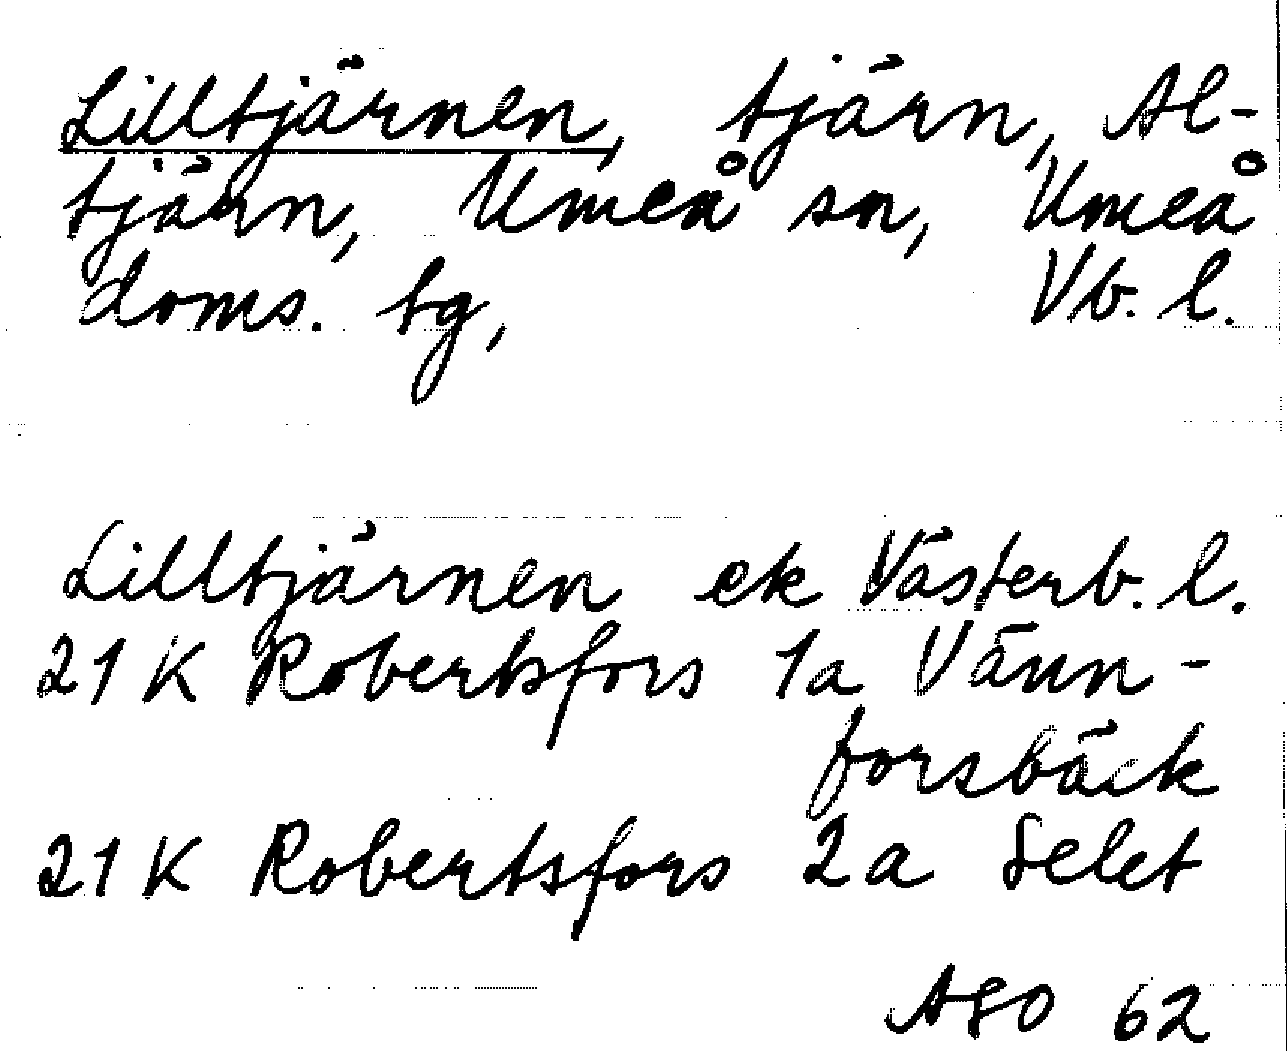 Lilltjärnen, tjärn, Al-
tjärn, Umeå sn, Umeå
doms. tg, Vb. l.
Lilltjärnen ek Västerb. l.
21 K Robertsfors 1a Vänn-
forsbäck
21 K Robertsfors 2a Selet
ASO 62